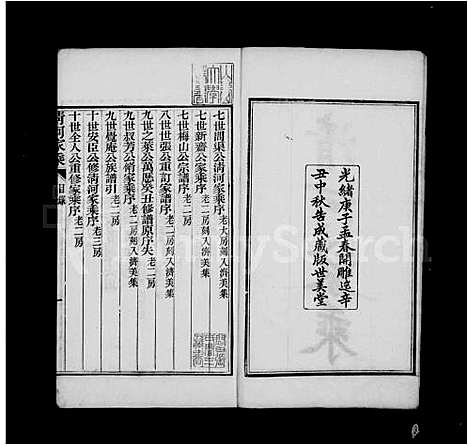 光緒庚子孟春開雕迄辛
丑中秋告成藏版世美堂
七世問渠公清河家乘序 老大房刻入濟美集
七世新齋公家乘序 老二房刻入濟美集
七世梅山公宗譜序 老二房
八世世張公重訂家譜序 老二房
九世之萊公萬歷癸丑修譜原序失 老二房
九世叔芳公清家乘序 老二房刻入濟美集
九世覺庵公族譜引 老二房
十世安臣公修清河家乘序 老三房
十世全人公重修家乘序 老二房
清河家乘 目錄